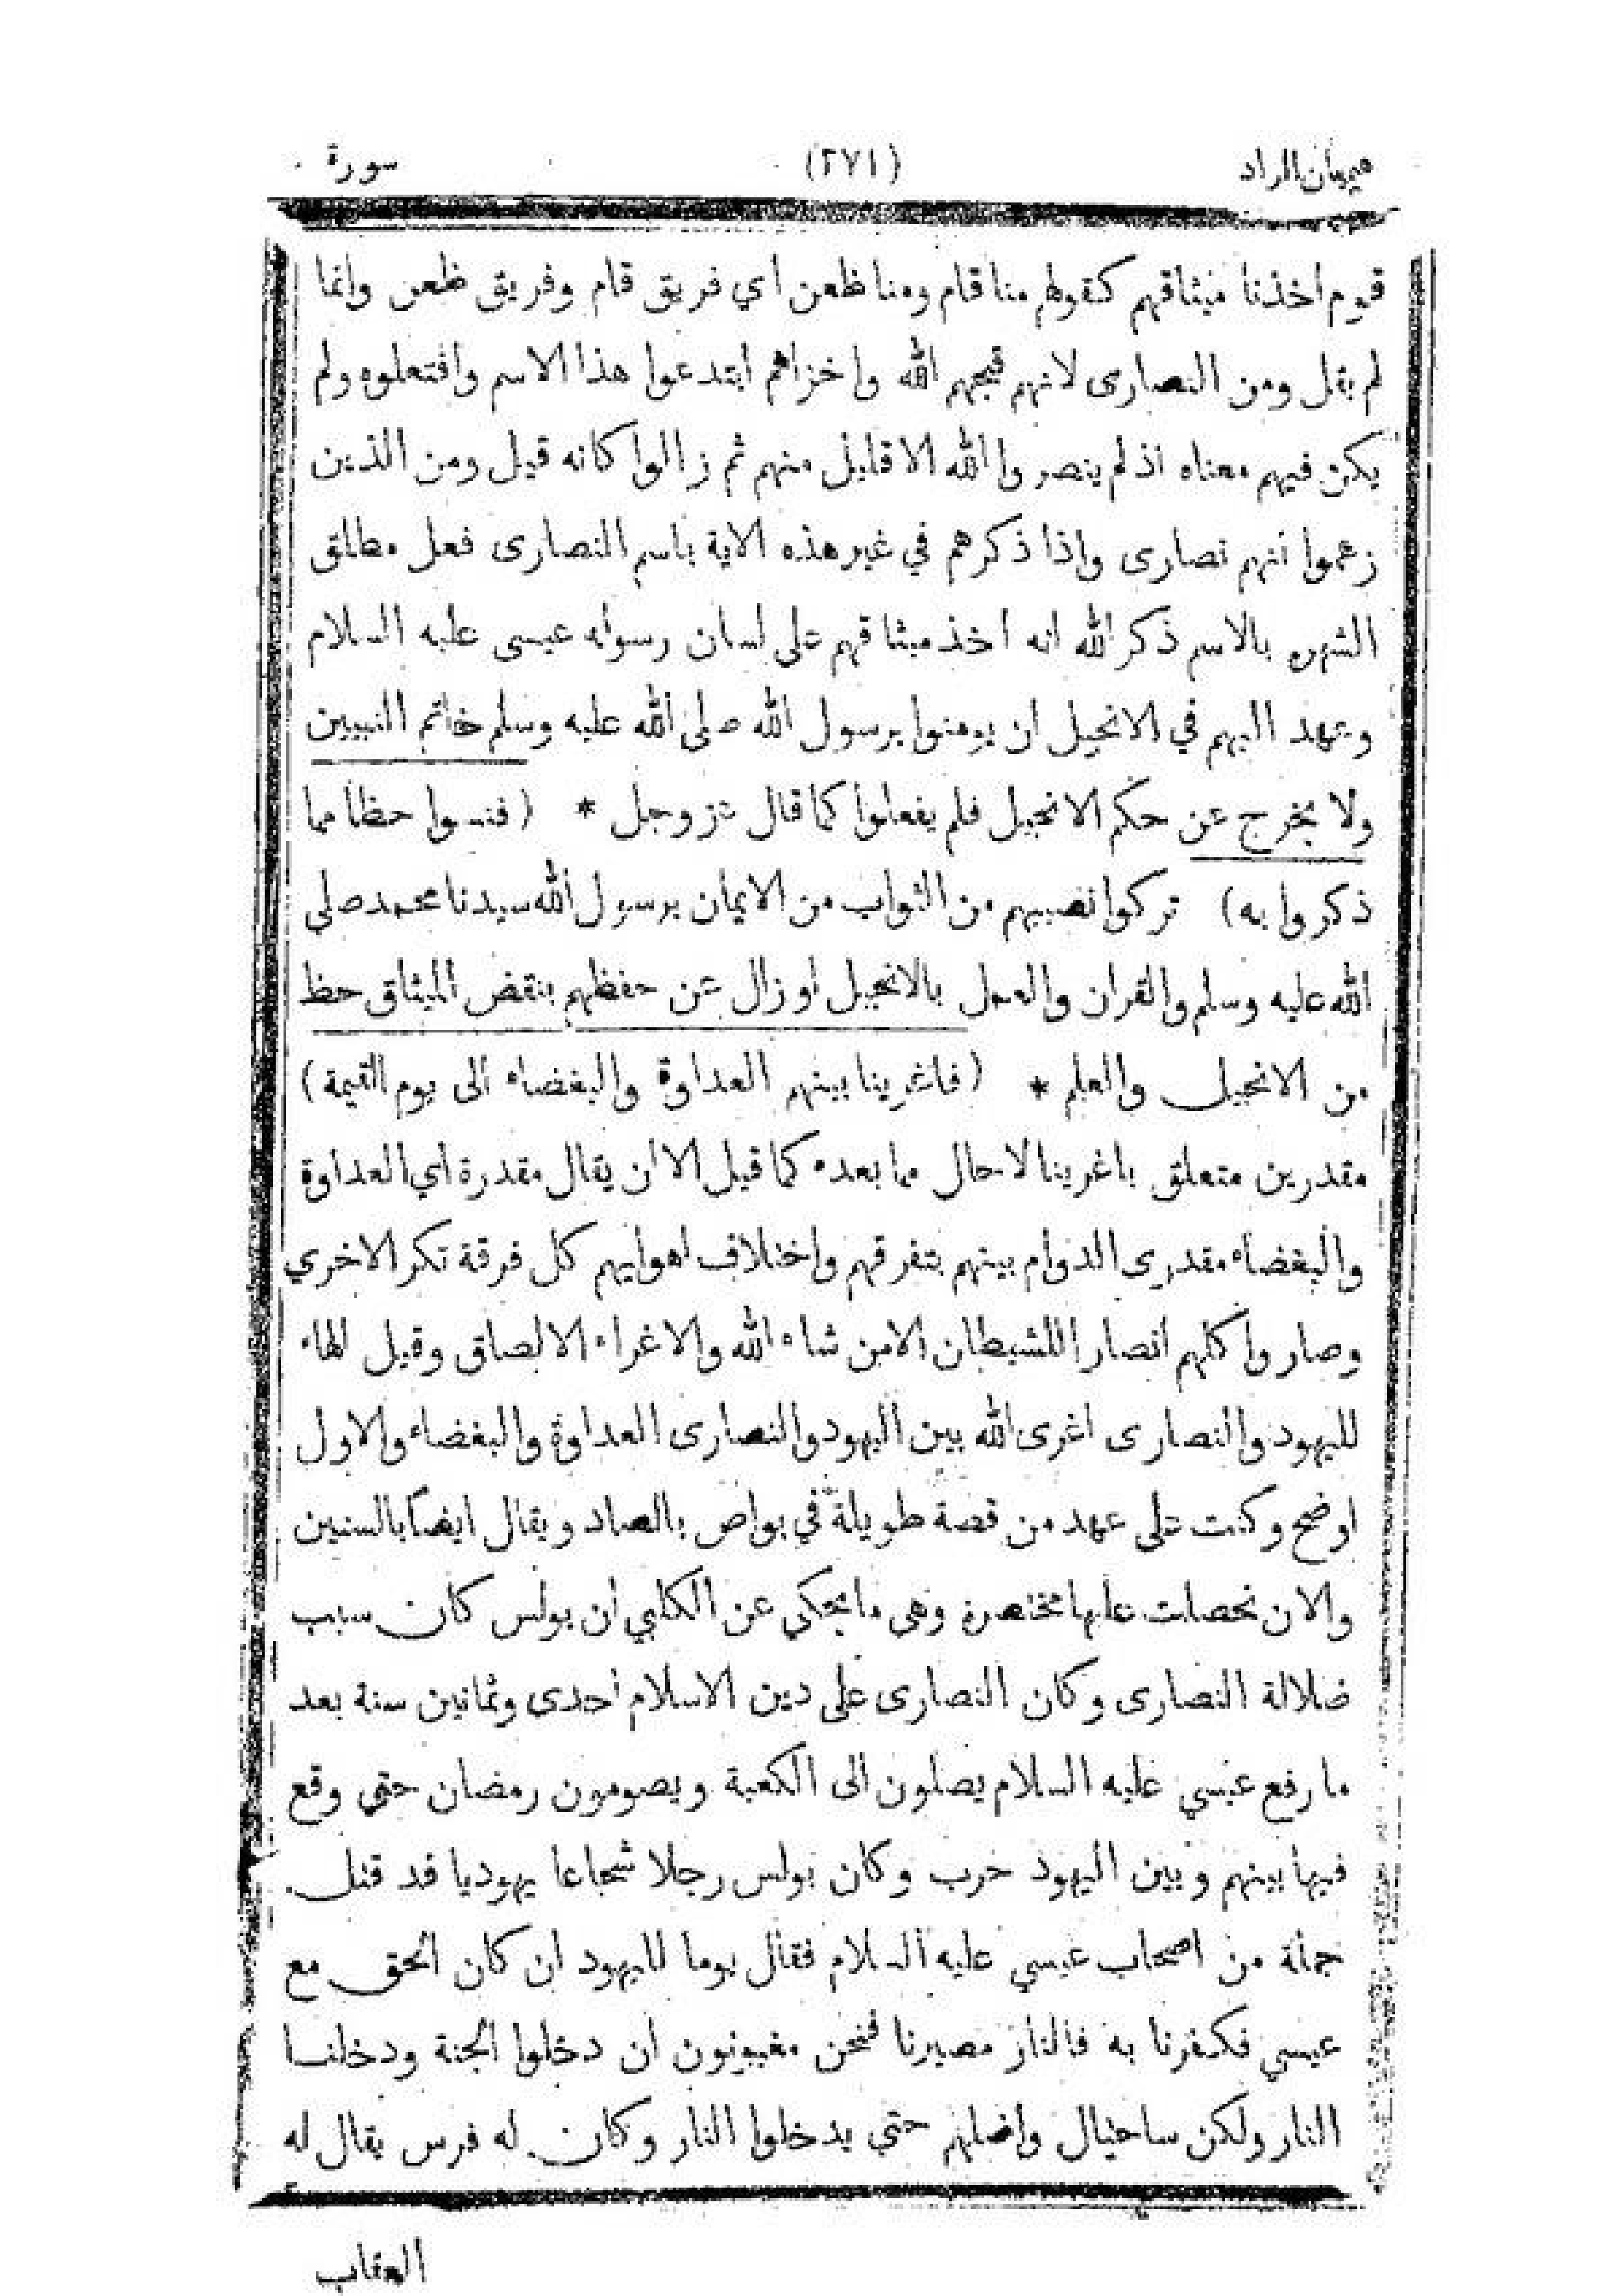 هيميان الزاد (٢٧١) سورة
قوم اخذنا ميثاقهم كقولهم منا قام ومنا ظعن أي فريق قام وفريق ظعن وانما
لم يقل ومن النصارى لانهم قبحهم الله واخزاهم ابتدعوا هذا الاسم وافتعلوه ولم
يكن فيهم معناه اذ لم ينصروا الله الا قليل منهم ثم زالوا كانه قيل ومن الذين
زعموا انهم نصارى واذا ذكرهم في غير هذه الاية باسم النصارى فعل مطلق
الشهره بالاسم ذكر الله انه اخذ ميثاقهم على لسان رسوله عيسى عليه السلام
وعهد اليهم في الانجيل ان يومنوا برسول الله صلى الله عليه وسلم خاتم النبيين
ولا يخرج عن حكم الانجيل فلم يفعلوا كما قال عز وجل * (فنسوا حظا مما
ذكروا به) تركوا نصيبهم من الثواب من الايمان برسول الله سيدنا محمد صلى
الله عليه وسلم والقران والعمل بالانجيل او زال عن حفظهم بنقض الميثاق حظ
من الانجيل والعلم * (فاغرينا بينهم العداوة والبغضاء الى يوم القيمة)
مقدرين متعلق باغرينا لا حال مما بعده كما قيل الا ان يقال مقدرة أي العداوة
والبغضاء مقدرى الدوام بينهم بتفرقهم واختلاف اهوايهم كل فرقة تكر الاخري
وصاروا كلهم انصارا للشيطان الا من شاء الله والاغراء الالصاق وقيل الهاء
لليهود والنصارى اغرى الله بين اليهود والنصارى العداوة والبغضاء والاول
اوضح وكنت على عهد من قصة طويلة في بواص بالصاد ويقال ايضا بالسنين
والان تحصلت عليها مختصرة وهى ما يحكي عن الكلبي أن بولس كان سبب
ضلالة النصارى وكان النصارى على دين الاسلام أحدى وثمانين سنة بعد
ما رفع عيسي عليه السلام يصلون الى الكعبة ويصومون رمضان حتي وقع
فيها بينهم وبين اليهود حرب وكان بولس رجلا شجاعا يهوديا قد قتل
جملة من اصحاب عيسي عليه السلام فقال يوما لليهود ان كان الحق مع
عيسي فكفرنا به فالنار مصيرنا فنحن مغبونون ان دخلوا الجنة ودخلنا
النار ولكن ساحتال واضلهم حتي يدخلوا النار وكان له فرس يقال له
العقاب